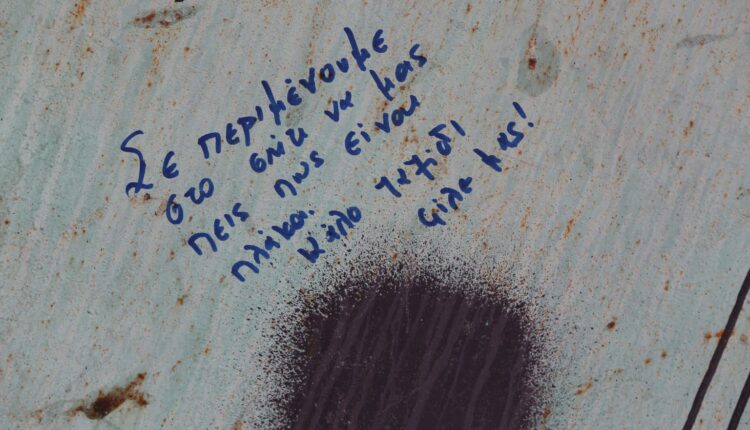 Σε περιμένουμε
στο σπίτι να μας
πεις πως είναι
πλάκα. Καλό ταξίδι
φίλε μας!